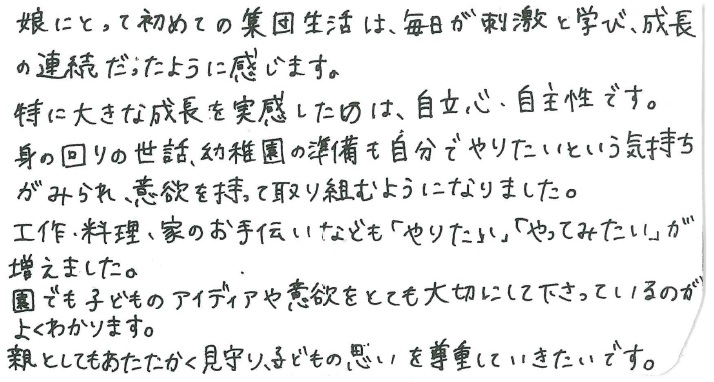 娘にとって初めての集団生活は、毎日が刺激と学び、成長
の連続だったように感じます。
特に大きな成長を実感したのは、自立心・自主性です。
身の回りの世話、幼稚園の準備も自分でやりたいという気持ち
がみられ、意欲を持って取り組むようになりました。
工作・料理、家のお手伝いなども「やりたい」「やってみたい」が
増えました。
園でも子どものアイディアや意欲をとても大切にして下さっているのが
よくわかります。
親としてもあたたかく見守り、子どもの思いを尊重していきたいです。